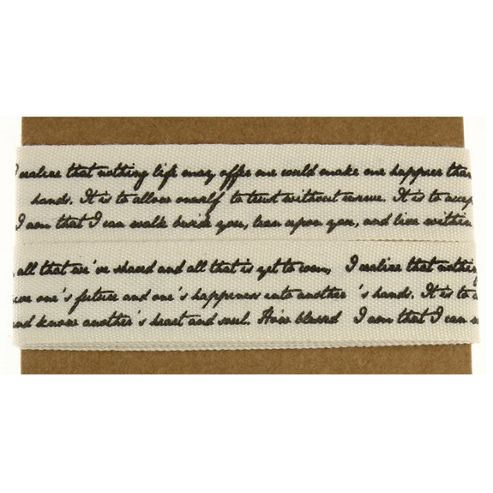 I realize that nothing life may offer one would make one happier than
hands. It is to allow oneself to trust without reserve. It is to accep
I am that I can walk beside you, lean upon you, and live within
all that we've shared and all that is yet to come, I realize that nothing
one's future and one's happiness into another 's hands. It is to a
and know another's heart and soul. How blessed I am that I can